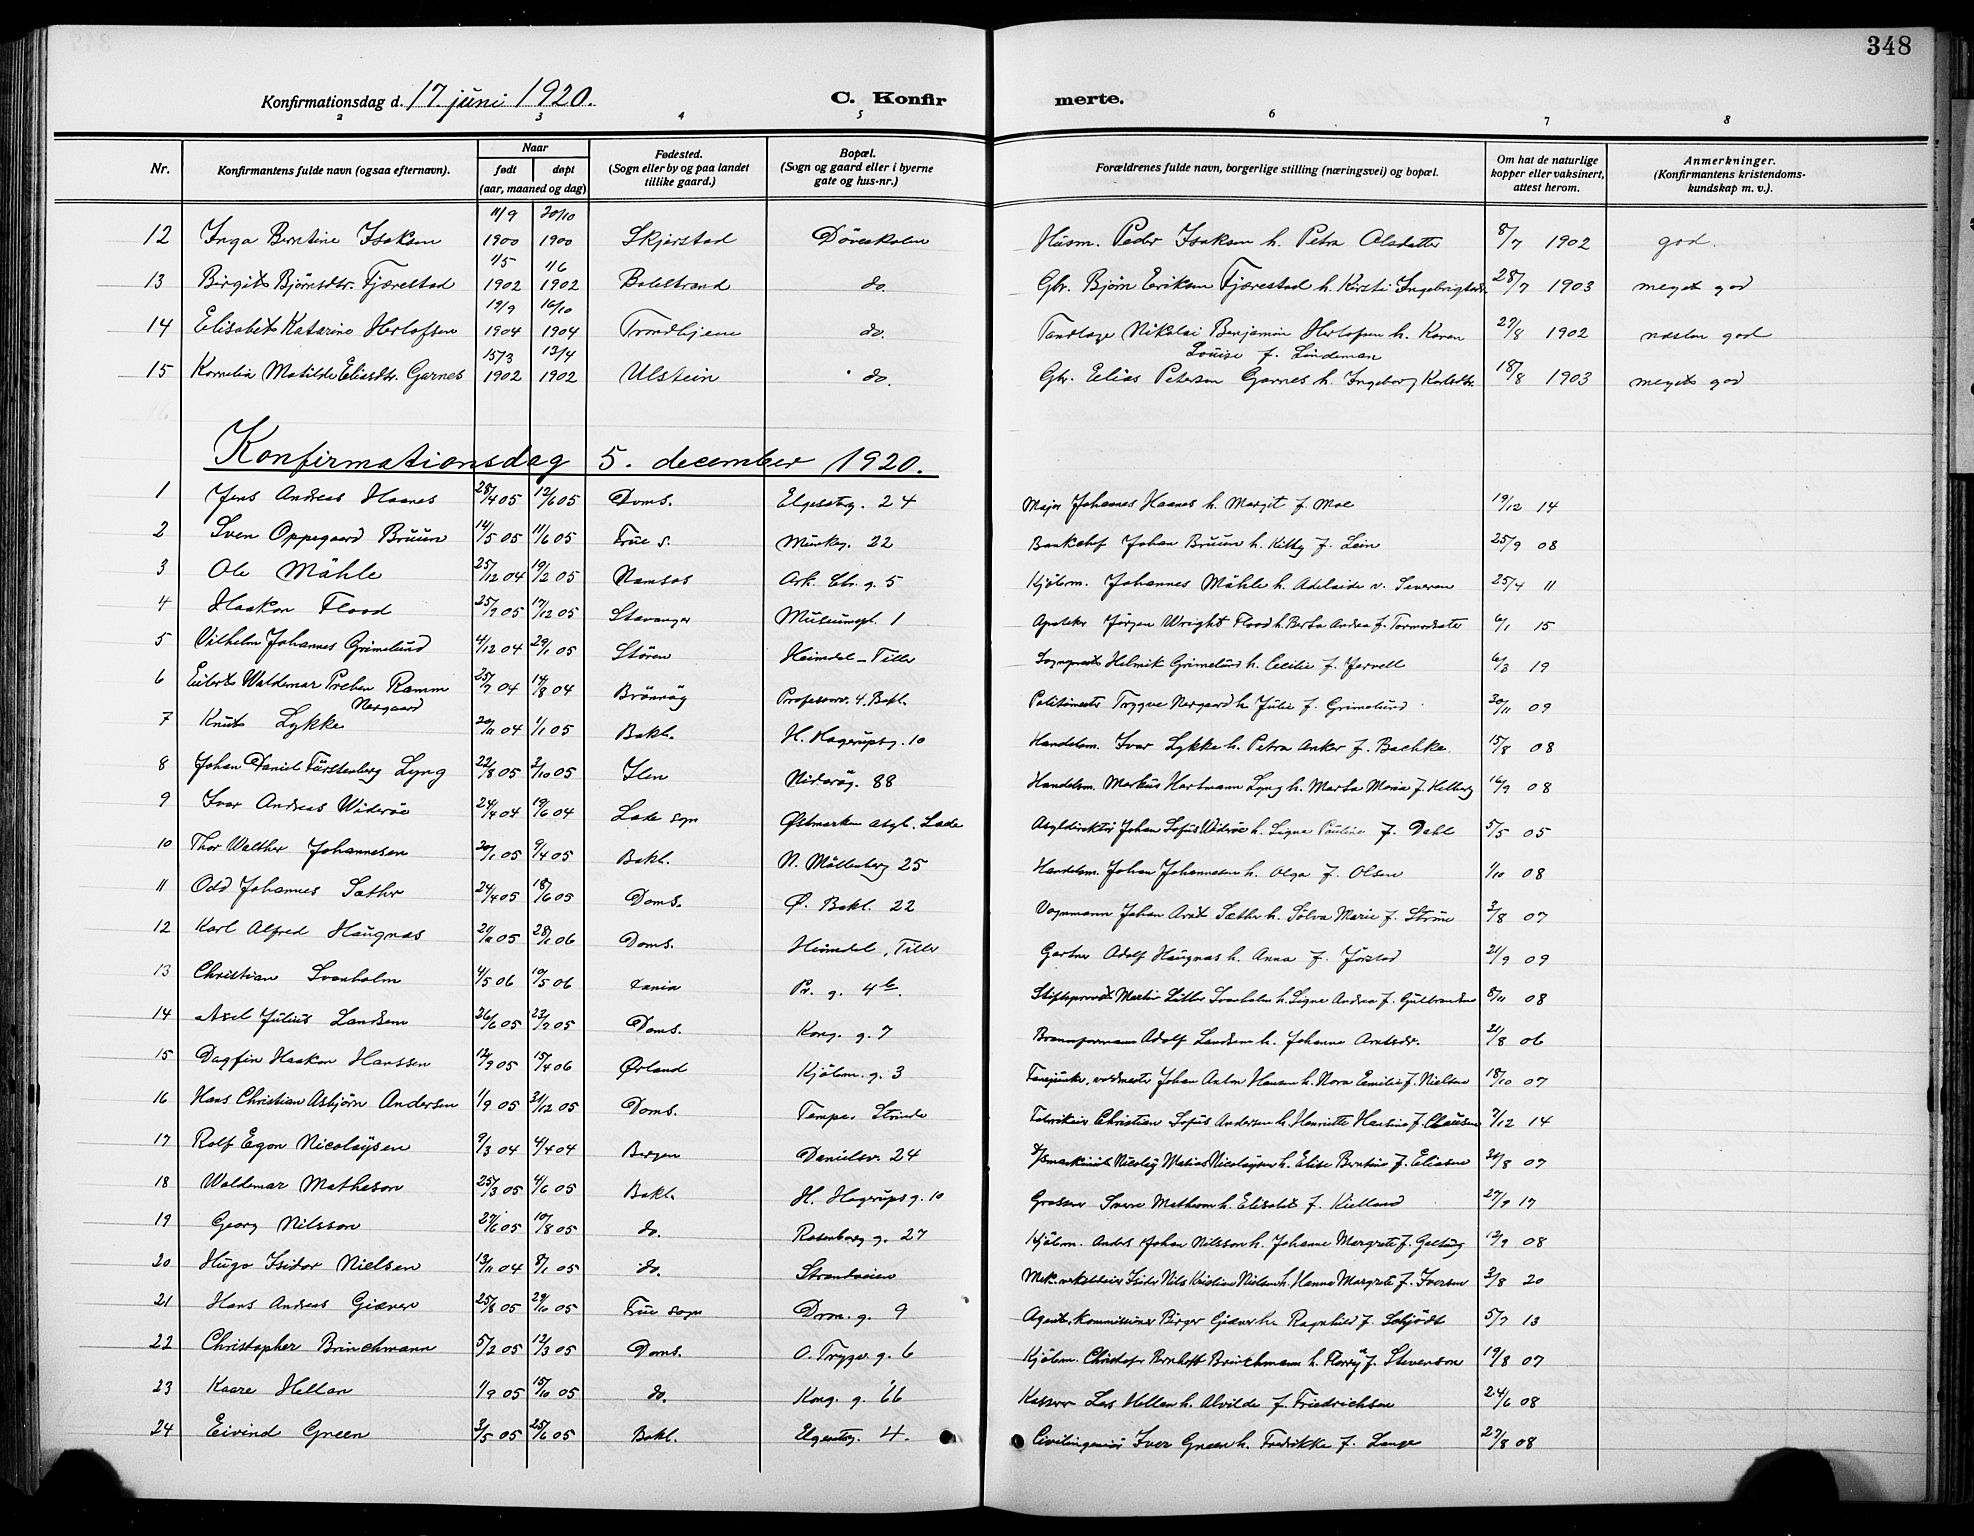 348
Konfirmationsdag d. 17. juni 1920. C. Konfir merte.
2 3 4 5 6 7 8
Nr. Konfirmantens fulde navn (ogsaa efternavn). Naar født døpt (aar, maaned og dag) Fødested. (Sogn eller by og paa landet tillike gaard.) Bopæl. (Sogn og gaard eller i byerne gate og hus-nr.) Forældrenes fulde navn, borgerlige stilling (næringsvei) og bopæl. Om hat de naturlige kopper eller vaksinert, attest herom. Anmerkninger. (Konfirmantens kristendoms-kundskap m. v.).
12 Inga Berntine Isaksen 11/9 1900 20/10 1900 Skjerstad Døveskolen Husm. Peder Isaksen h. Petra Olsdatter 8/7 1902 god.
13 Birgit Bjørnsdtr. Fjærestad 1/5 1902 1/6 1902 Balestrand do. Gbr. Bjørn Eriksen Fjærestad h. Kirsti Ingebrigtsdr. 28/7 1903 meget god
14 Elisabet Katarine Herlofsen 19/9 1904 16/10 1904 Trondhjem do. Tandlæge Nikolai Benjamin Herlofsen h. Karen Louise f. Lindeman 27/8 1902 næsten god
15 Kornelia Matilde Eliasdtr. Garnes 15/3 1902 13/4 1902 Ulstein do. Gbr. Elias Petersen Garnes h. Ingeborg Karlsdtr. 18/8 1903 meget god
Konfirmationsdag 5. december 1920.
1 Jens Andreas Haanes 28/4 05 12/6 05 Doms. Elgesetsg. 24 Major Johannes Haanes h. Margit f. Moe 19/12 14
2 Sven Oppegaard Bruun 14/5 05 11/6 05 Frue s. Munkeg. 22 Bankchef Johan Bruun h. Kitty f. Lein 25/9 08
3 Ole Mähle 25/12 04 19/2 05 Namsos Ark. Chr. g. 5 Kjøbm. Johannes Mähle h. Adelaide v. Severen 25/4 11
4 Haakon Flood 25/9 05 17/12 05 Stavanger Museumspl. 1 Apoteker Jørgen Wright Flood h. Berta Andrea f. Tormodsæter 6/1 15
5 Vilhelm Johannes Grimelund 4/12 04 29/1 05 Støren Heimdal - Tiller Sogneprest Helmik Grimelund h. Cecilie f. Jervell 6/3 19
6 Eilert Waldemar Preben Ramm Nergaard 25/7 04 14/8 04 Brønnøy Professorv. 4, Bakl. Politimester Trygve Nergaard h. Julie f. Grimelund 20/11 09
7 Knut Lykke 20/11 04 1/1 05 Bakl. H. Hagerupsg. 10 Handelsm. Ivar Lykke h. Petra Anker f. Bachke 15/8 08
8 Johan Daniel Fürstenberg Lyng 22/8 05 2/10 05 Ilen Nidarøg. 88 Handelsm. Markus Hartmann Lyng h. Marta Maria f. Kelberg 16/9 08
9 Ivar Andreas Widerøe 24/4 04 19/6 04 Lade sogn Østmarken asyl. Lade Asyldirektør Johan Sofus Widerøe h. Signe Pauline f. Dahl 5/5 05
10 Thor Walther Johannesen 20/1 05 9/4 05 Bakl. N. Møllenberg 25 Handelsm. Johan Johannesen h. Olga f. Olsen 1/10 08
11 Odd Johannes Sæther 24/4 05 18/6 05 Doms. Ø. Bakl. 22 Vognmann Johan Arnt Sæther h. Sølva Marie f. Strøm 3/8 07
12 Karl Alfred Haugnæs 21/11 05 28/1 06 Doms. Heimdal, Tiller Gartner Adolf Haugnæs h. Anna f. Jørstad 21/9 09
13 Christian Svanholm 4/5 06 10/5 06 Xania Pr. g. 4b. Stiftsprovst Martin Luther Svanholm h. Signe Andrea f. Gulbrandsen 8/11 08
14 Axel Julius Landsem 26/6 05 23/7 05 Doms. Kong. g. 7 Brannformann Adolf Landsem h. Johanne Arntsdr. 21/8 06
15 Dagfin Haakon Hanssen 12/9 05 15/4 06 Ørland Kjøbm. g. 3 Fanejunker, Johan Anton Hansen h. Nora Emilie f. Nielsen 18/10 07
16 Hans Christian Asbjørn Andersen 1/9 05 31/12 05 Doms. Tempe, Strinde Fabrikeier Christian Sofus Andersen h. Henriette Hansine f. Clausen 7/12 14
17 Rolf Egon Nicolaysen 9/3 04 4/4 04 Bergen Danielsv. 24 Nicolay Matias Nicolaysen h. Elise Berntine f. Eliasen 20/8 07
18 Waldemar Matheson 25/3 05 4/6 05 Bakl. H. Hagerupsg. 10 Grosserer Sverre Matheson h. Elisabet f. Kielland 27/9 17
19 Georg Nilsson 27/6 05 10/8 05 do. Rosenborg g. 27 Kjøbm. Anders Johan Nilsson h. Johanne Margrete f. Galtung 12/9 08
20 Hugo Isidor Nielsen 13/11 04 8/1 05 do. Strandveien Mek. verkstedeier Isidor Nils Kristian Nielsen h. Hanna Margrete f. Iversen 3/8 20
21 Hans Andreas Giæver 25/8 05 29/10 05 Frue sogn Dron. g. 9 Agent, Kommissioner Birger Giæver h. Ragnhild f. Schjødt 5/7 13
22 Christopher Brinchmann 5/2 05 12/3 05 Doms. O. Trygv. g. 6 Kjøbm. Christofer Bernhoft Brinchmann h. Florry f. Stevenson 19/8 07
23 Kaare Hellan 1/9 05 15/10 05 do. Kong. g. 66 Kasserer Lars Hellan h. Alvilde f. Friedrichsen 24/6 08
24 Eivind Green 3/5 05 25/6 05 Bakl. Elgesetsg. 4. Civilingeniør Iver Green h. Fredrikke f. Lange 27/8 08